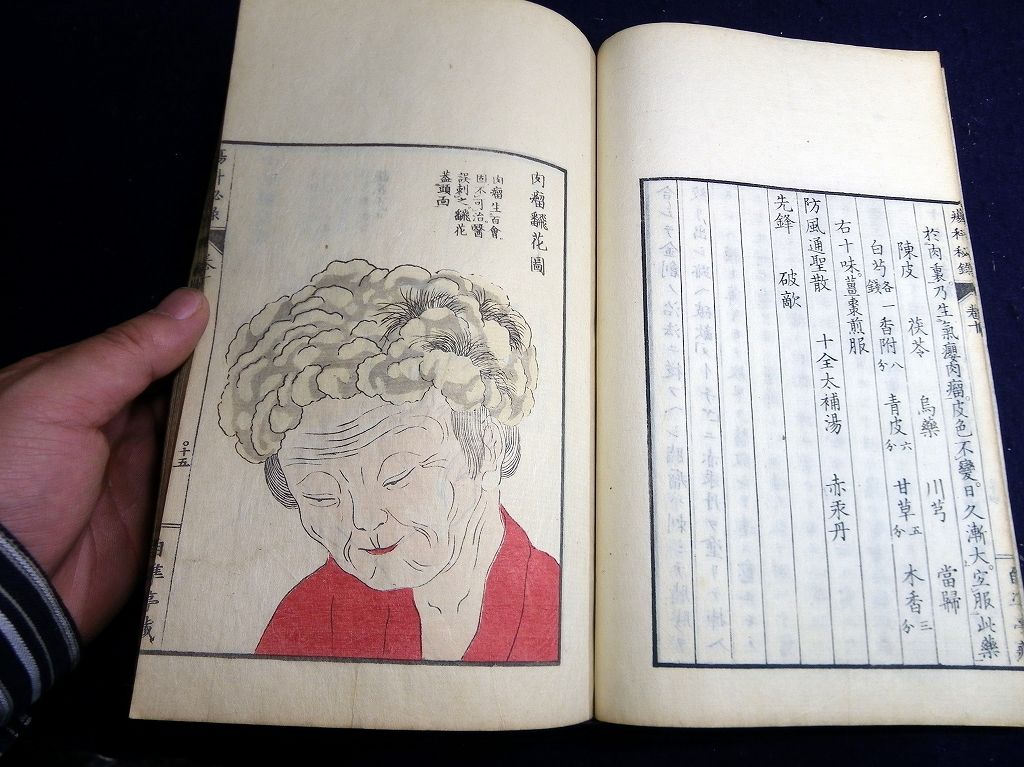 瘍科秘錄 卷十
於肉裏乃生氣癭肉瘤。皮色不變。日久漸大。宜服此藥
陳皮 茯苓 烏藥 川芎 當歸
白芍各一錢 香附八分 青皮六分 甘草五分 木香三分
右十味。薑棗煎服
防風通聖散 十全太補湯 赤汞丹
先鋒 破敵
肉瘤飜花圖
肉瘤生百會
固不可治。醫
誤刺之。飜花
蓋頭面
〇十五